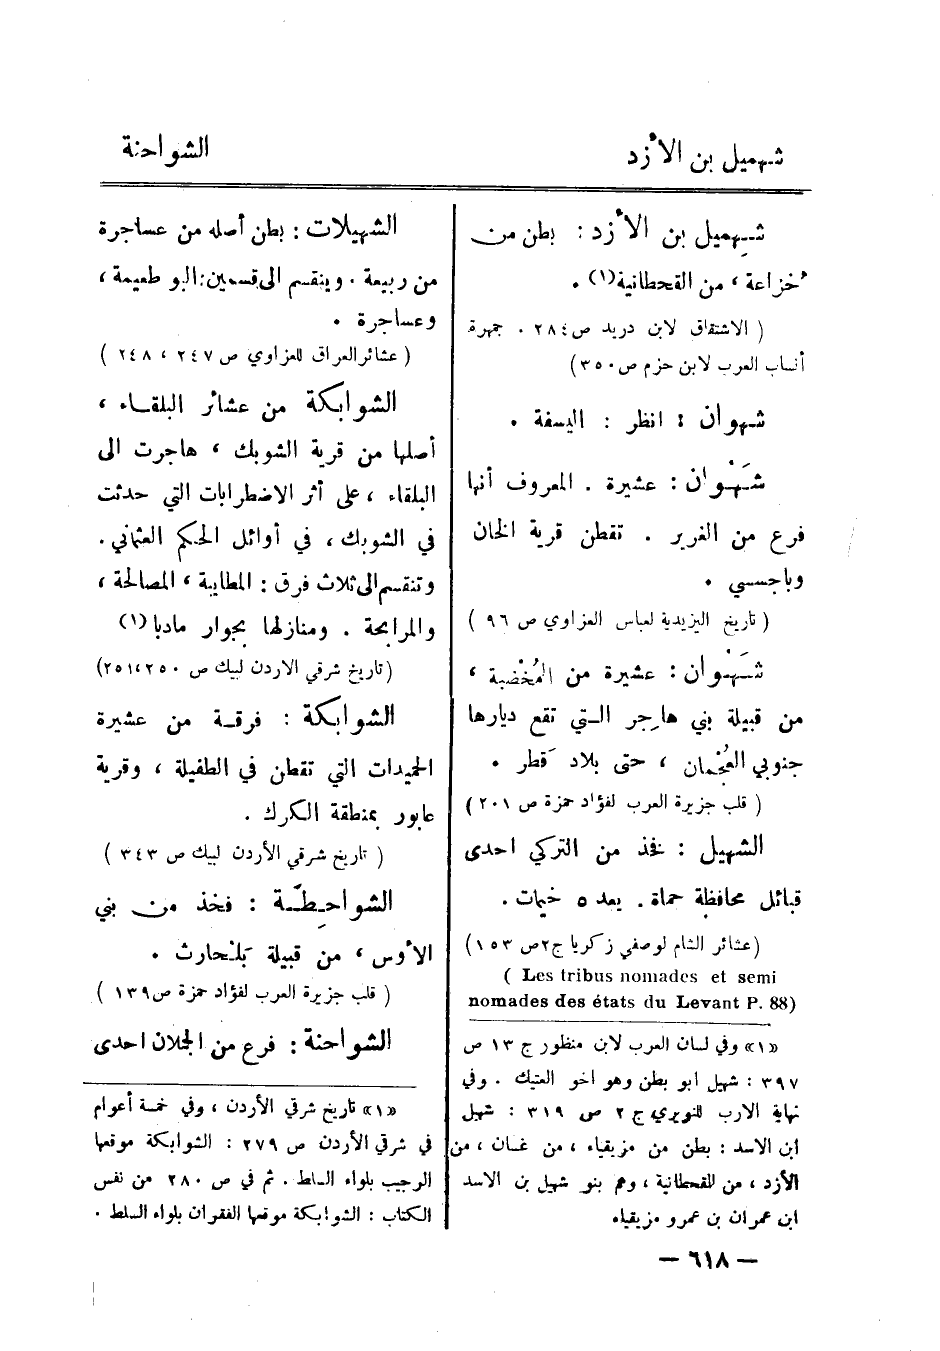 شهميل بن الأزد
الشواحنة
شهميل بن الأزد : بطن من
خزاعة ، من القحطانية(١) .
( الاشتقاق لابن دريد ص٢٨٤ . جمهرة
أنساب العرب لابن حزم ص٣٥٠)
شهوان : انظر : اليسفة .
شَهْوان : عشيرة . المعروف أنها
فرع من الغرير . تقطن قرية الخان
وباجسي .
( تاريخ اليزيدية لعباس العزاوي ص ٩٦ )
شَهْوان : عشيرة من المُخْضبة ،
من قبيلة بني هاجر التي تقع ديارها
جنوبي العُجْمان ، حتى بلاد قَطر .
( قلب جزيرة العرب لفؤاد حمزة ص ٢٠١ )
الشهيل : فخذ من التركي احدى
قبائل محافظة حماة . يعد ٥ خيمات .
(عشائر الشام لوصفي زكريا ج٢ص ١٥٣)
( Les tribus nomades et semi
nomades des états du Levant P. 88)
«١» وفي لسان العرب لابن منظور ج ١٣ ص
٣٩٧ : شهيل ابو بطن وهو اخو العتيك . وفي
نهاية الارب للنويري ج ٢ ص ٣١٩ : شهيل
ابن الاسد : بطن من مزيقياء ، من غسان ، من
الأزد ، من القحطانية ، وهم بنو شهيل بن الاسد
ابن عمران بن عمرو مزيقياء
الشهيلات : بطن أصله من عساجرة
من ربيعة . وينقسم الى قسمين : البو طعيمة ،
وعساجرة .
( عشائر العراق للعزاوي ص ٢٤٧ ، ٢٤٨ )
الشوابكة من عشائر البلقاء ،
أصلها من قرية الشوبك ، هاجرت الى
البلقاء ، على أثر الاضطرابات التي حدثت
في الشوبك ، في أوائل الحكم العثماني .
وتنقسم الى ثلاث فرق : المطايبة ، المصالحة ،
والمرابحة . ومنازلها بجوار مادبا(١)
(تاريخ شرقي الاردن لبيك ص ٢٥٠،٢٥١)
الشوابكة : فرقة من عشيرة
الحميدات التي تقطن في الطفيلة ، وقرية
عابور بمنطقة الكرك .
( تاريخ شرقي الأردن لبيك ص ٣٤٣ )
الشواحِطَّة : فخذ من بني
الأوس ، من قبيلة بَلْحارث .
( قلب جزيرة العرب لفؤاد حمزة ص١٣٩ )
الشواحنة : فرع من الجملان احدى
«١» تاريخ شرقي الأردن ، وفي خمسة أعوام
في شرقي الأردن ص ٢٧٩ : الشوابكة موقعها
الرجيب بلواء السلط . ثم في ص ٢٨٠ من نفس
الكتاب : الشوابكة موقعها الفقران بلواء السلط .
— ٦١٨ —